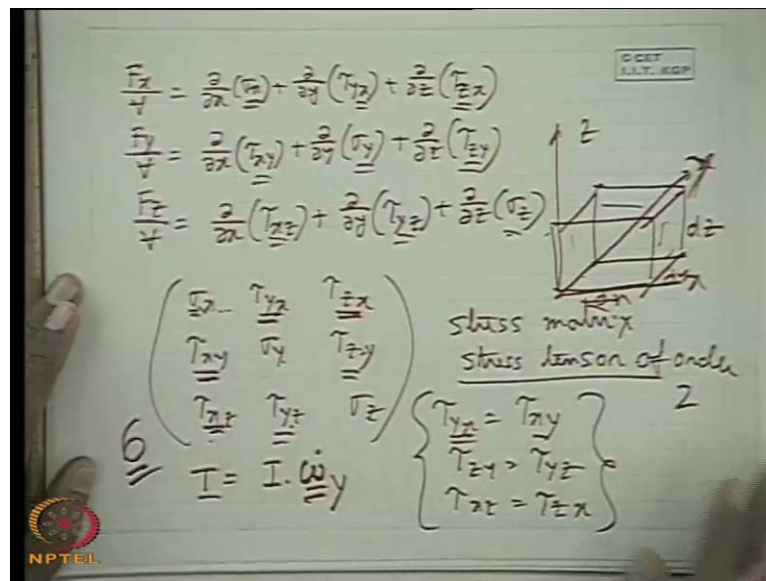 CCET
I.I.T. KGP
Fx/∀ = ∂/∂x(σx) + ∂/∂y(τyx) + ∂/∂z(τzx)
Fy/∀ = ∂/∂x(τxy) + ∂/∂y(σy) + ∂/∂z(τzy)
Fz/∀ = ∂/∂x(τxz) + ∂/∂y(τyz) + ∂/∂z(σz)
z
y
dz
x
σx τyx τzx
τxy σy τzy
τxz τyz σz
stress matrix
stress tensor of order
2
6
I = I. ω̇y
τyx = τxy
τzy = τyz
τxz = τzx
NPTEL